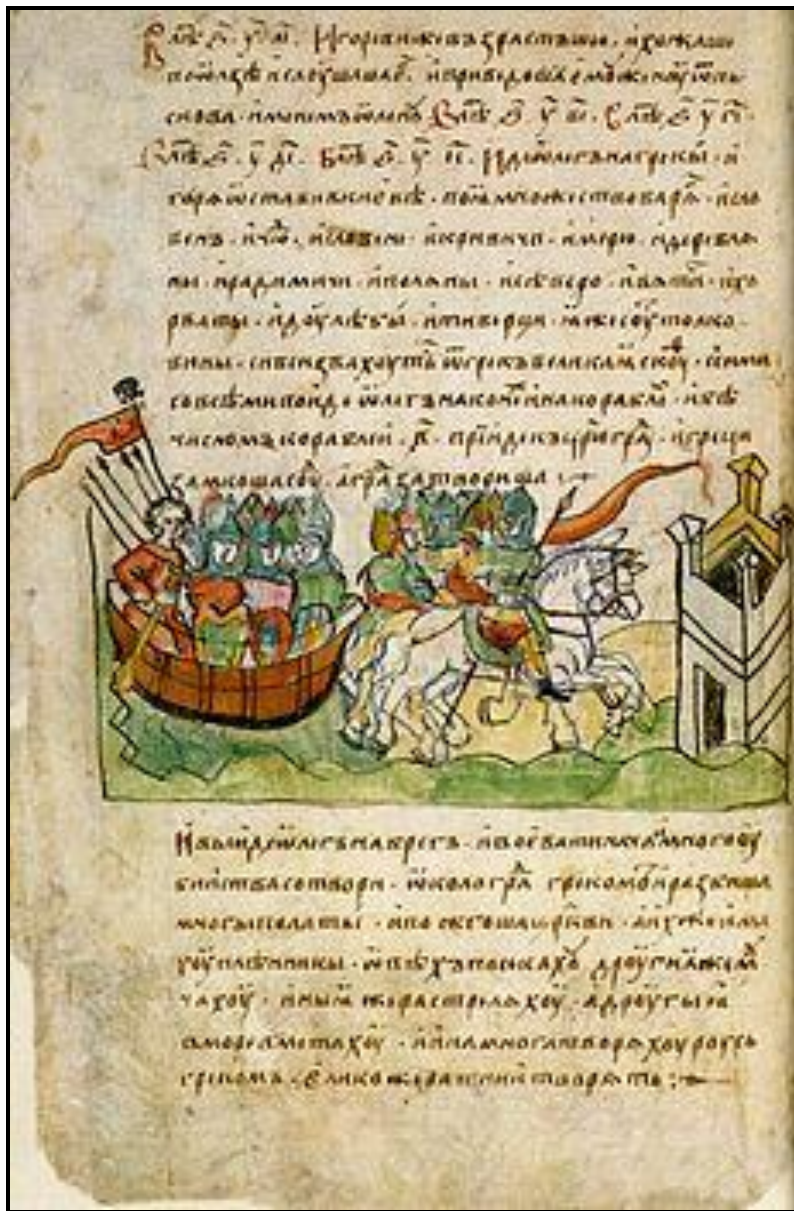 В лѣⷮ ҂ѕ҃. у҃ аі҃. Игореви же взрастъшю. и хожаше
по ѡлзѣ и слоушаше еⷢ҇. и приведоша емоу женоу ѿ пь
скова. именемъ ѡленоу В лѣⷮ ҂ѕ҃ у҃ ві҃. В лѣⷮ ҂ѕ҃ у҃ гі҃.
В лѣⷮ ҂ѕ҃. у҃ ді҃. В лѣⷮ ҂ѕ҃. у҃ еі҃. Иде ѡлегъ на грекы. и
горѧ ѡстави в киевѣ. поѧ множество варѧⷢ. и сло
венъ. и чюⷣ. и словени. и кривичи. и мерю. и деревлѧ
ны. и радимичи. и полѧны. и сѣверо. и вѧтиⷱ. и хо
рваты. и доулѣбы. и тиверци. ꙗже соуⷮ толко
вины. си вси звахоуть ѿ грекъ великаꙗ скоуⷴ. и с ими
со всѣми поиде ѡлегъ на конеⷯ и на кораблеⷯ. и бѣ
числомъ кораблеи. ҂в҃. прїиде къ црюграⷣ. и греци
замкоша соуⷣ. а граⷣ затвориша
И вылѣзе ѡлегъ на брегъ. и воевати нача и много оу
биства сотвори. ѡколо граⷣ грекомъ и разбиша
многы полаты. и пожгоша црⷪкви. а ихже има
хоу плѣнникы. ѡвѣхъ посѣкахоу дроугиꙗ же моу
чахоу. иныꙗ же растрелѧхоу. а дроугыꙗ в
море вметахоу. и ина многа творѧхоу роусь
грекомъ. елико же ратнии творѧть